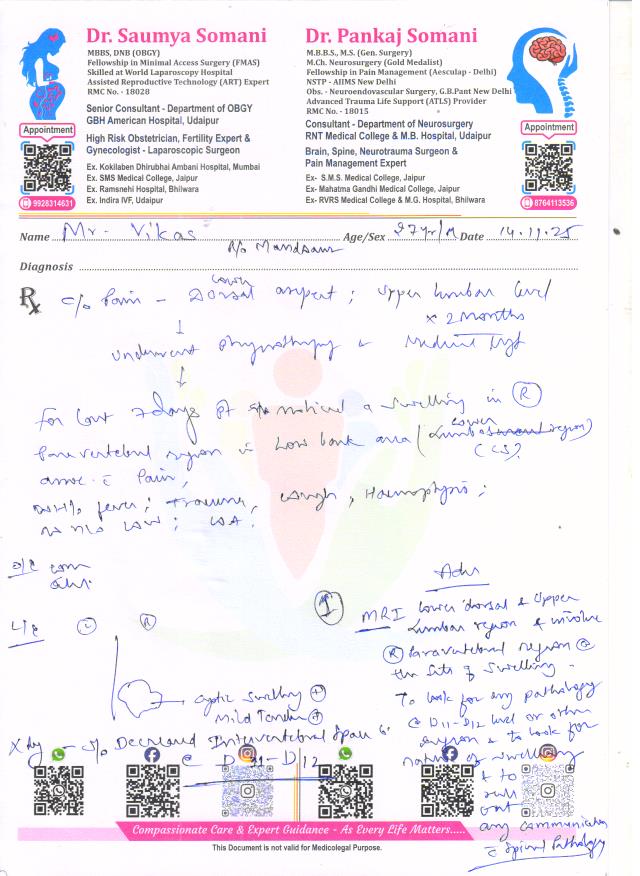 Dr. Saumya Somani
MBBS, DNB (OBGY)
Fellowship in Minimal Access Surgery (FMAS)
Skilled at World Laparoscopy Hospital
Assisted Reproductive Technology (ART) Expert
RMC No. - 18028
Senior Consultant - Department of OBGY
GBH American Hospital, Udaipur
High Risk Obstetrician, Fertility Expert &
Gynecologist - Laparoscopic Surgeon
Ex. Kokilaben Dhirubhai Ambani Hospital, Mumbai
Ex. SMS Medical College, Jaipur
Ex. Ramsnehi Hospital, Bhilwara
Ex. Indira IVF, Udaipur
Appointment
9928314631
Dr. Pankaj Somani
M.B.B.S., M.S. (Gen. Surgery)
M.Ch. Neurosurgery (Gold Medalist)
Fellowship in Pain Management (Aesculap - Delhi)
NSTP - AIIMS New Delhi
Obs. - Neuroendovascular Surgery, G.B.Pant New Delhi
Advanced Trauma Life Support (ATLS) Provider
RMC No. - 18015
Consultant - Department of Neurosurgery
RNT Medical College & M.B. Hospital, Udaipur
Brain, Spine, Neurotrauma Surgeon &
Pain Management Expert
Ex- S.M.S. Medical College, Jaipur
Ex- Mahatma Gandhi Medical College, Jaipur
Ex- RVRS Medical College & M.G. Hospital, Bhilwara
Appointment
8764113536
Name Mr. Vikas Age/Sex 27yr/M Date 14.11.25
R/o Mandsaur
Diagnosis
Rx c/o Pain - Dorsal lower aspect ; upper lumbar level
x 2 months
underwent physiotherapy
For last 7 days Pt noticed a swelling in (R)
Paravertebral region in Low back area ( lower region)
assoc. c Pain,
fever ; Trauma, cough, Haemoptysis ;
O/E
L/E (L) (R)
cystic swelling (+)
Mild Tender (+)
Xray - S/o Decreased Intervertebral Space
@ D11-D12
Adv
(1) MRI lower dorsal & upper
lumbar region & involve
(R) Paravertebral region @
the site of swelling -
To look for any pathology
@ D11-D12 level or other
region & to look for
nature of swelling
& to
rule
out
any communication
c Spinal Pathology
Compassionate Care & Expert Guidance - As Every Life Matters.....
This Document is not valid for Medicolegal Purpose.